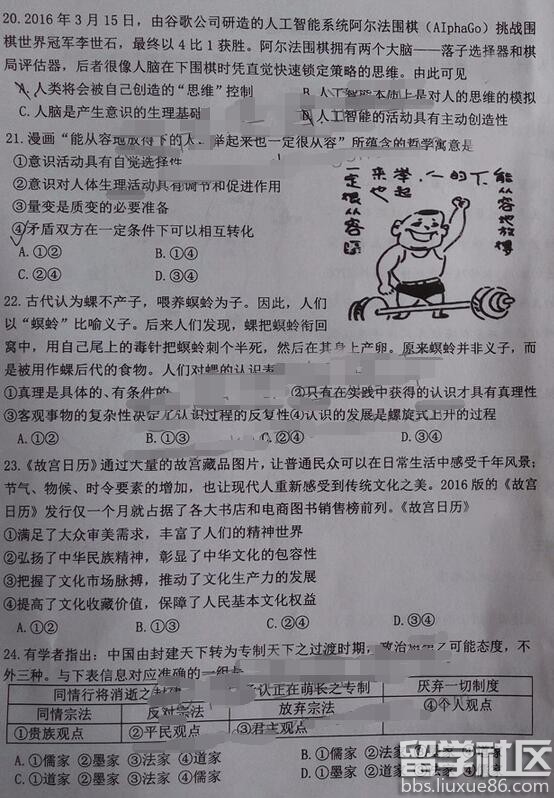 20. 2016 年 3 月 15 日，由谷歌公司研造的人工智能系统阿尔法围棋（AIphaGo）挑战围
棋世界冠军李世石，最终以 4 比 1 获胜。阿尔法围棋拥有两个大脑——落子选择器和棋
局评估器，后者很像人脑在下围棋时凭直觉快速锁定策略的思维。由此可见
A. 人类将会被自己创造的“思维”控制 B. 人工智能本质上是对人的思维的模拟
C. 人脑是产生意识的生理基础 D. 人工智能的活动具有主动创造性
21. 漫画“能从容地放得下的人，举起来也一定很从容”所蕴含的哲学寓意是
①意识活动具有自觉选择性
②意识对人体生理活动具有调节和促进作用
③量变是质变的必要准备
④矛盾双方在一定条件下可以相互转化
A. ①② B. ①④
C. ②④ D. ③④
能从容地放得
下的人，举起
来也一定很从容
22. 古代认为蜾不产子，喂养螟蛉为子。因此，人们
以“螟蛉”比喻义子。后来人们发现，蜾把螟蛉衔回
窝中，用自己尾上的毒针把螟蛉刺个半死，然后在其身上产卵。原来螟蛉并非义子，而
是被用作蜾后代的食物。人们对蜾的认识表
①真理是具体的、有条件的 ②只有在实践中获得的认识才具有真理性
③客观事物的复杂性决定了认识过程的反复性④认识的发展是螺旋式上升的过程
A. ①② B. ①③ C. ②④ D. ③④
23. 《故宫日历》通过大量的故宫藏品图片，让普通民众可以在日常生活中感受千年风景；
节气、物候、时令要素的增加，也让现代人重新感受到传统文化之美。2016 版的《故宫
日历》发行仅一个月就占据了各大书店和电商图书销售榜前列。《故宫日历》
①满足了大众审美需求，丰富了人们的精神世界
②弘扬了中华民族精神，彰显了中华文化的包容性
③把握了文化市场脉搏，推动了文化生产力的发展
④提高了文化收藏价值，保障了人民基本文化权益
A. ①② B. ①③ C. ②④ D. ③④
24. 有学者指出：中国由封建天下转为专制天下之过渡时期，政治 可能态度，不
外三种。与下表信息对应准确的一组
同情行将消逝之封建 承认正在萌长之专制 厌弃一切制度
同情宗法 反对宗法 放弃宗法 ④个人观点
①贵族观点 ②平民观点 ③君主观点
A. ①儒家 ②墨家 ③法家 ④道家 B. ①儒家 ②法家 ③墨家 ④道家
C. ①道家 ②墨家 ③法家 ④儒家 D. ①道家 ②法家 ③墨家 ④儒家
留学社区
bbs.liuxue86.com